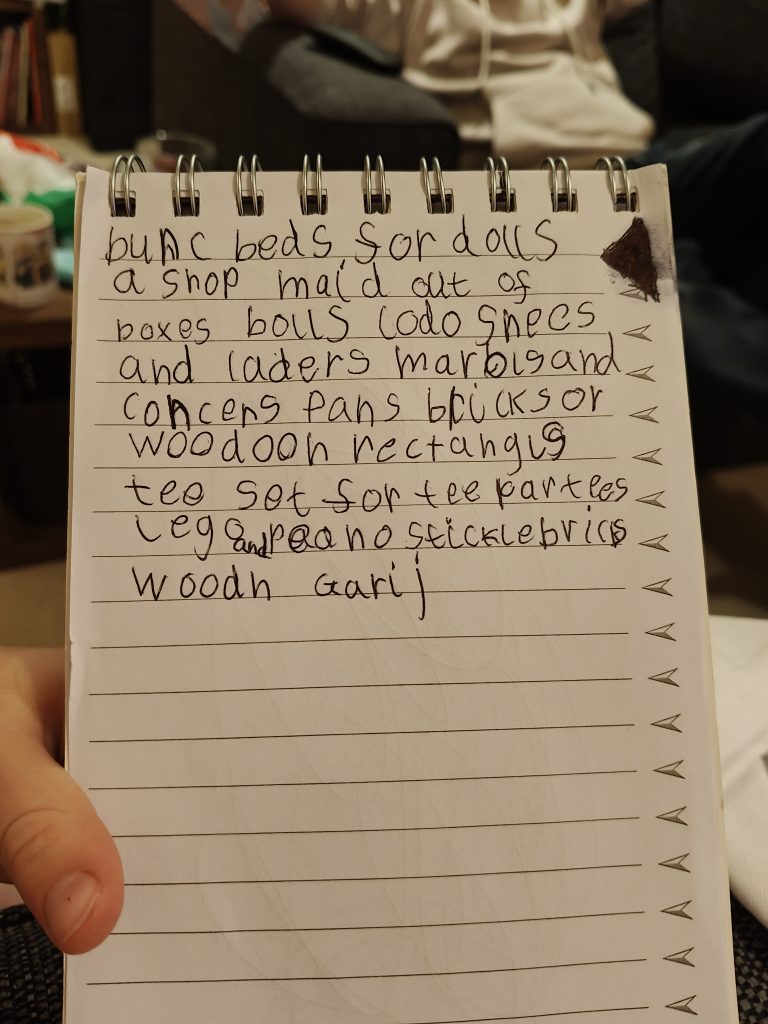 bunc beds for dolls
a shop maid out of
boxes bolls lodo snecs
and laders marblsand
concers pans bricks or
woodoon rectangls
tee set for tee partees
Lego and peano sticklebrics
woodn Garij